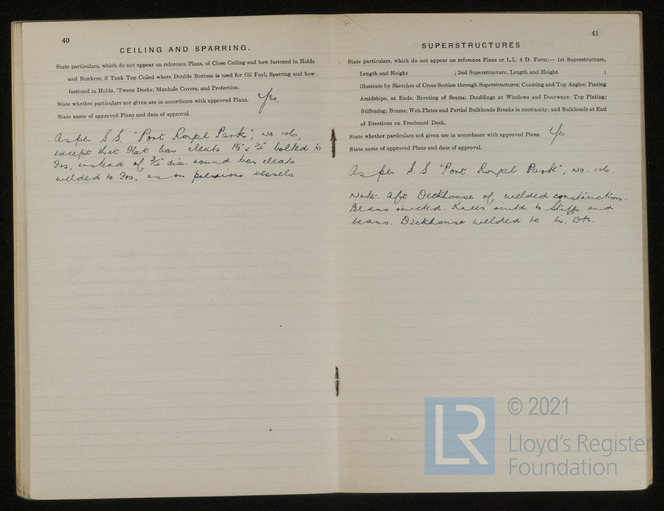 40
CEILING AND SPARRING.
State particulars, which do not appear on reference Plans, of Close Ceiling and how fastened in Holds
and Bunkers; if Tank Top Ceiled where Double Bottom is used for Oil Fuel; Sparring and how
fastened in Holds, 'Tween Decks; Manhole Covers, and Protection.
State whether particulars not given are in accordance with approved Plans. Yes.
State name of approved Plans and date of approval.
As per S.S. "Port Royal Park", No. 106,
except that flat bar cleats bolted to
Frs, instead of 3/4" dia. round bar cleats
welded to Frs, as on previous vessels
41
SUPERSTRUCTURES
State particulars, which do not appear on reference Plans or L.L. 4 D. Form:— 1st Superstructure,
Length and Height ; 2nd Superstructure, Length and Height ;
illustrate by Sketches of Cross Section through Superstructures; Coaming and Top Angles; Plating
Amidships, at Ends; Riveting of Seams; Doublings at Windows and Doorways; Top Plating;
Stiffening; Beams; Web Plates and Partial Bulkheads Breaks in continuity; and Bulkheads at End
of Erections on Freeboard Deck.
State whether particulars not given are in accordance with approved Plans. Yes
State name of approved Plans and date of approval.
As per S.S. "Port Royal Park", No. 106.
Note: Aft Deckhouse of welded construction.
Beams riveted. Knees to Stiffs and
beams. Deckhouse welded to
© 2021
LR
Lloyd's Register
Foundation